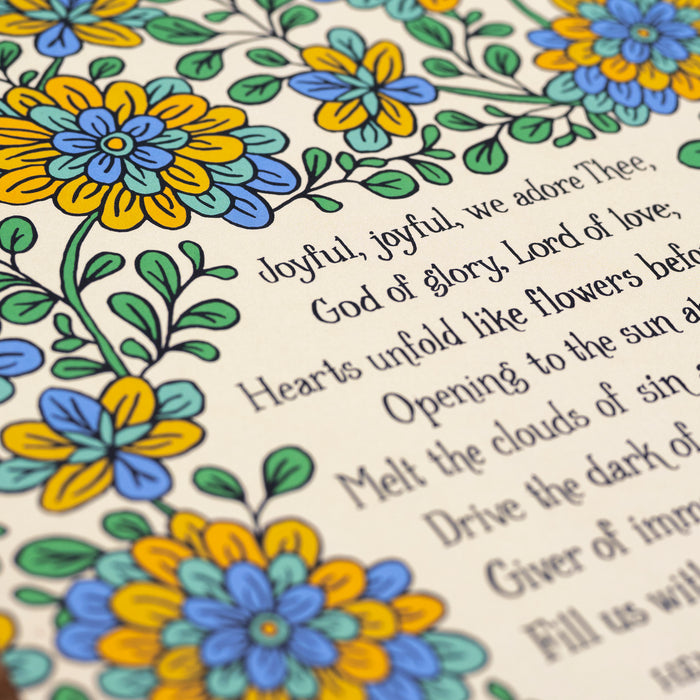 Joyful, joyful, we adore Thee,
God of glory, Lord of love;
Hearts unfold like flowers befo
Opening to the sun a
Melt the clouds of sin
Drive the dark of
Giver of imm
Fill us wi